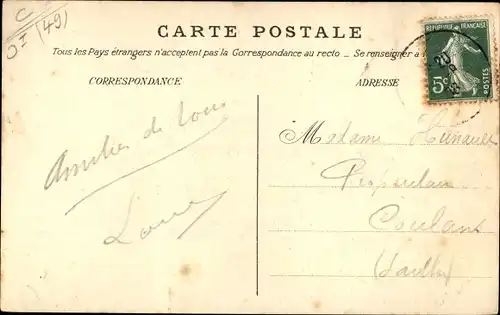 C
OI (49)
CARTE POSTALE
Tous les Pays étrangers n'acceptent pas la Correspondance au recto _ Se renseigner à
CORRESPONDANCE
ADRESSE
REPUBLIQUE FRANÇAISE
5c
POSTES
Amitiés de tous
Madame Hunault
Coulans
(Sarthe)